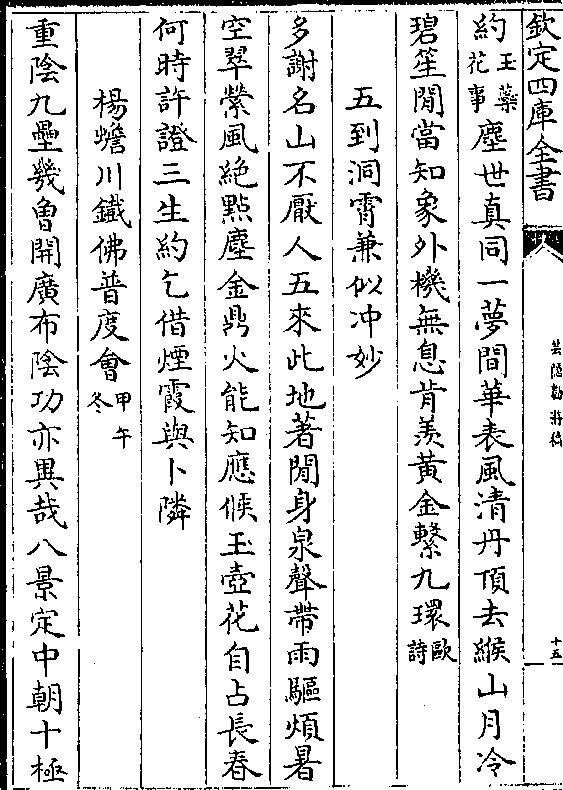 欽定四庫全書
芸隱勸游稿
十五
約玉蘂花事塵世真同一夢間華表風清丹頂去緱山月冷
碧笙閒當知象外機無息肯羨黃金繫九環歐詩
五到洞霄兼似冲妙
多謝名山不厭人五來此地著閒身泉聲帶雨驅煩暑
空翠縈風絶點塵金鼎火能知應候玉壺花自占長春
何時許證三生約乞借煙霞與卜隣
楊蟾川鐵佛普度會甲午冬
重陰九壘幾曾開廣布陰功亦異哉八景定中朝十極